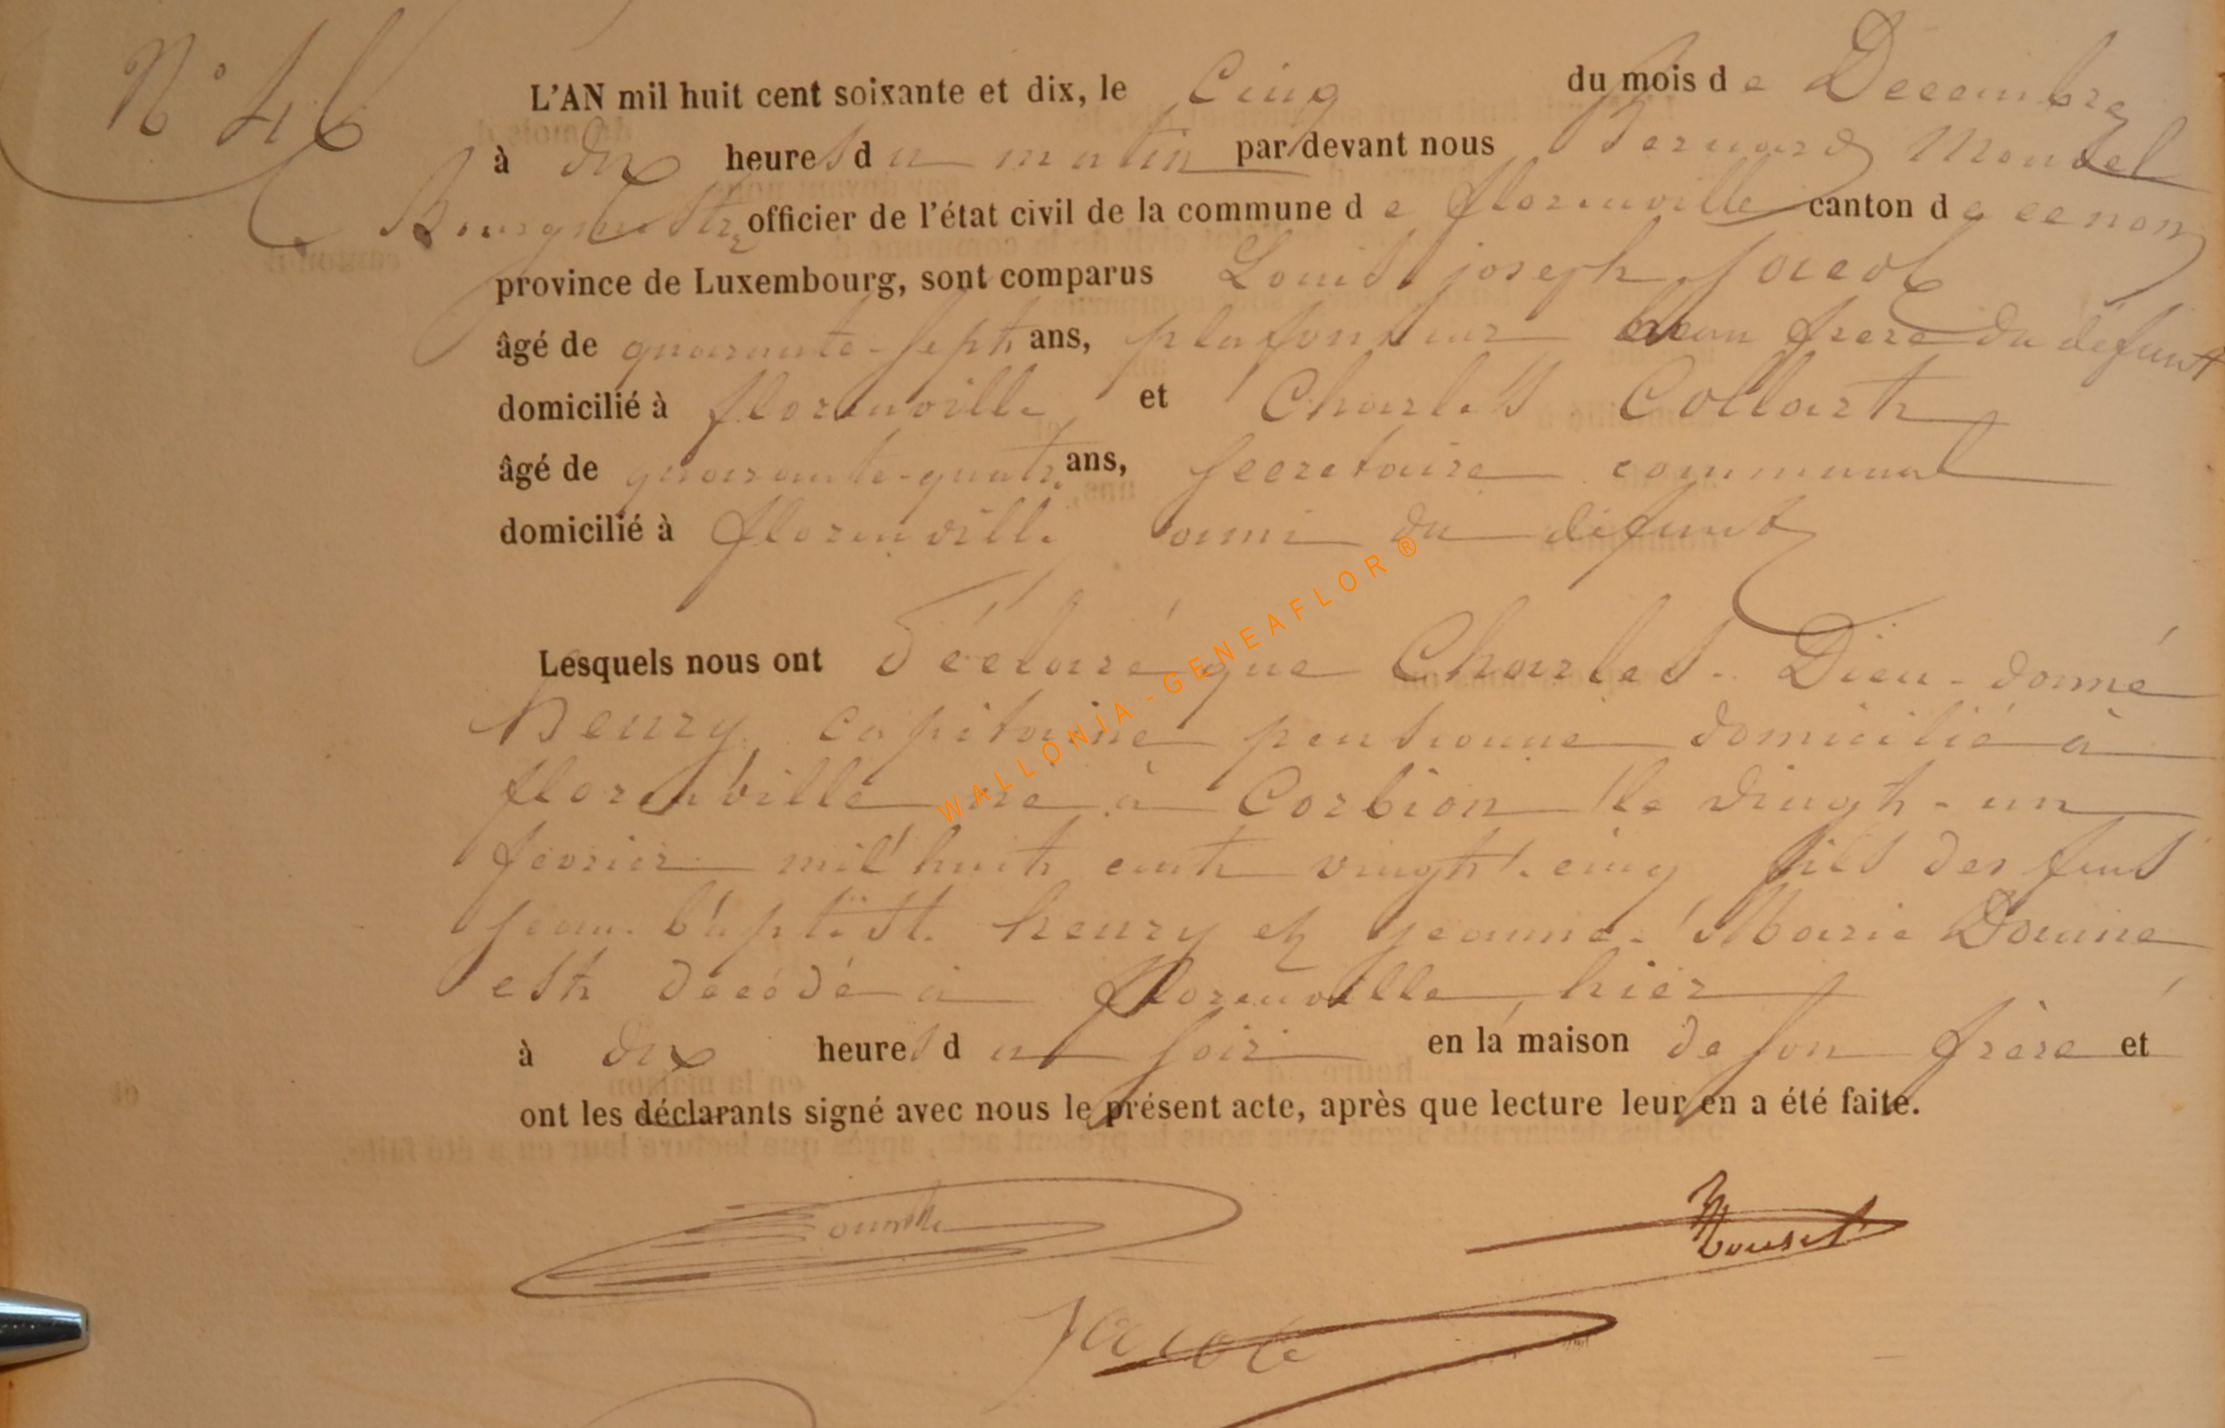 N° 46
L'AN mil huit cent soixante et dix, le Cinq du mois de Decembre
à dix heures du matin par devant nous Bernard
Bourgmestre officier de l'état civil de la commune de florenville canton de
province de Luxembourg, sont comparus Louis joseph
âgé de quarante-sept ans, plafonneur beau frere du défunt
domicilié à florenville et Charles Collart
âgé de quarante-quatre ans, secretaire communal
domicilié à florenville ami du défunt
Lesquels nous ont déclaré que Charles-Dieu-donné
henry capitaine pensionné domicilié à
florenville né à Corbion le vingt-un
fevrier mil huit cent vingt-cinq fils des feus
jean-baptiste henry et jeanne-Marie
est décédé à florenville hier
à dix heures du soir en la maison de son frère et
ont les déclarants signé avec nous le présent acte, après que lecture leur en a été faite.
WALLONIA-GENEAFLOR®